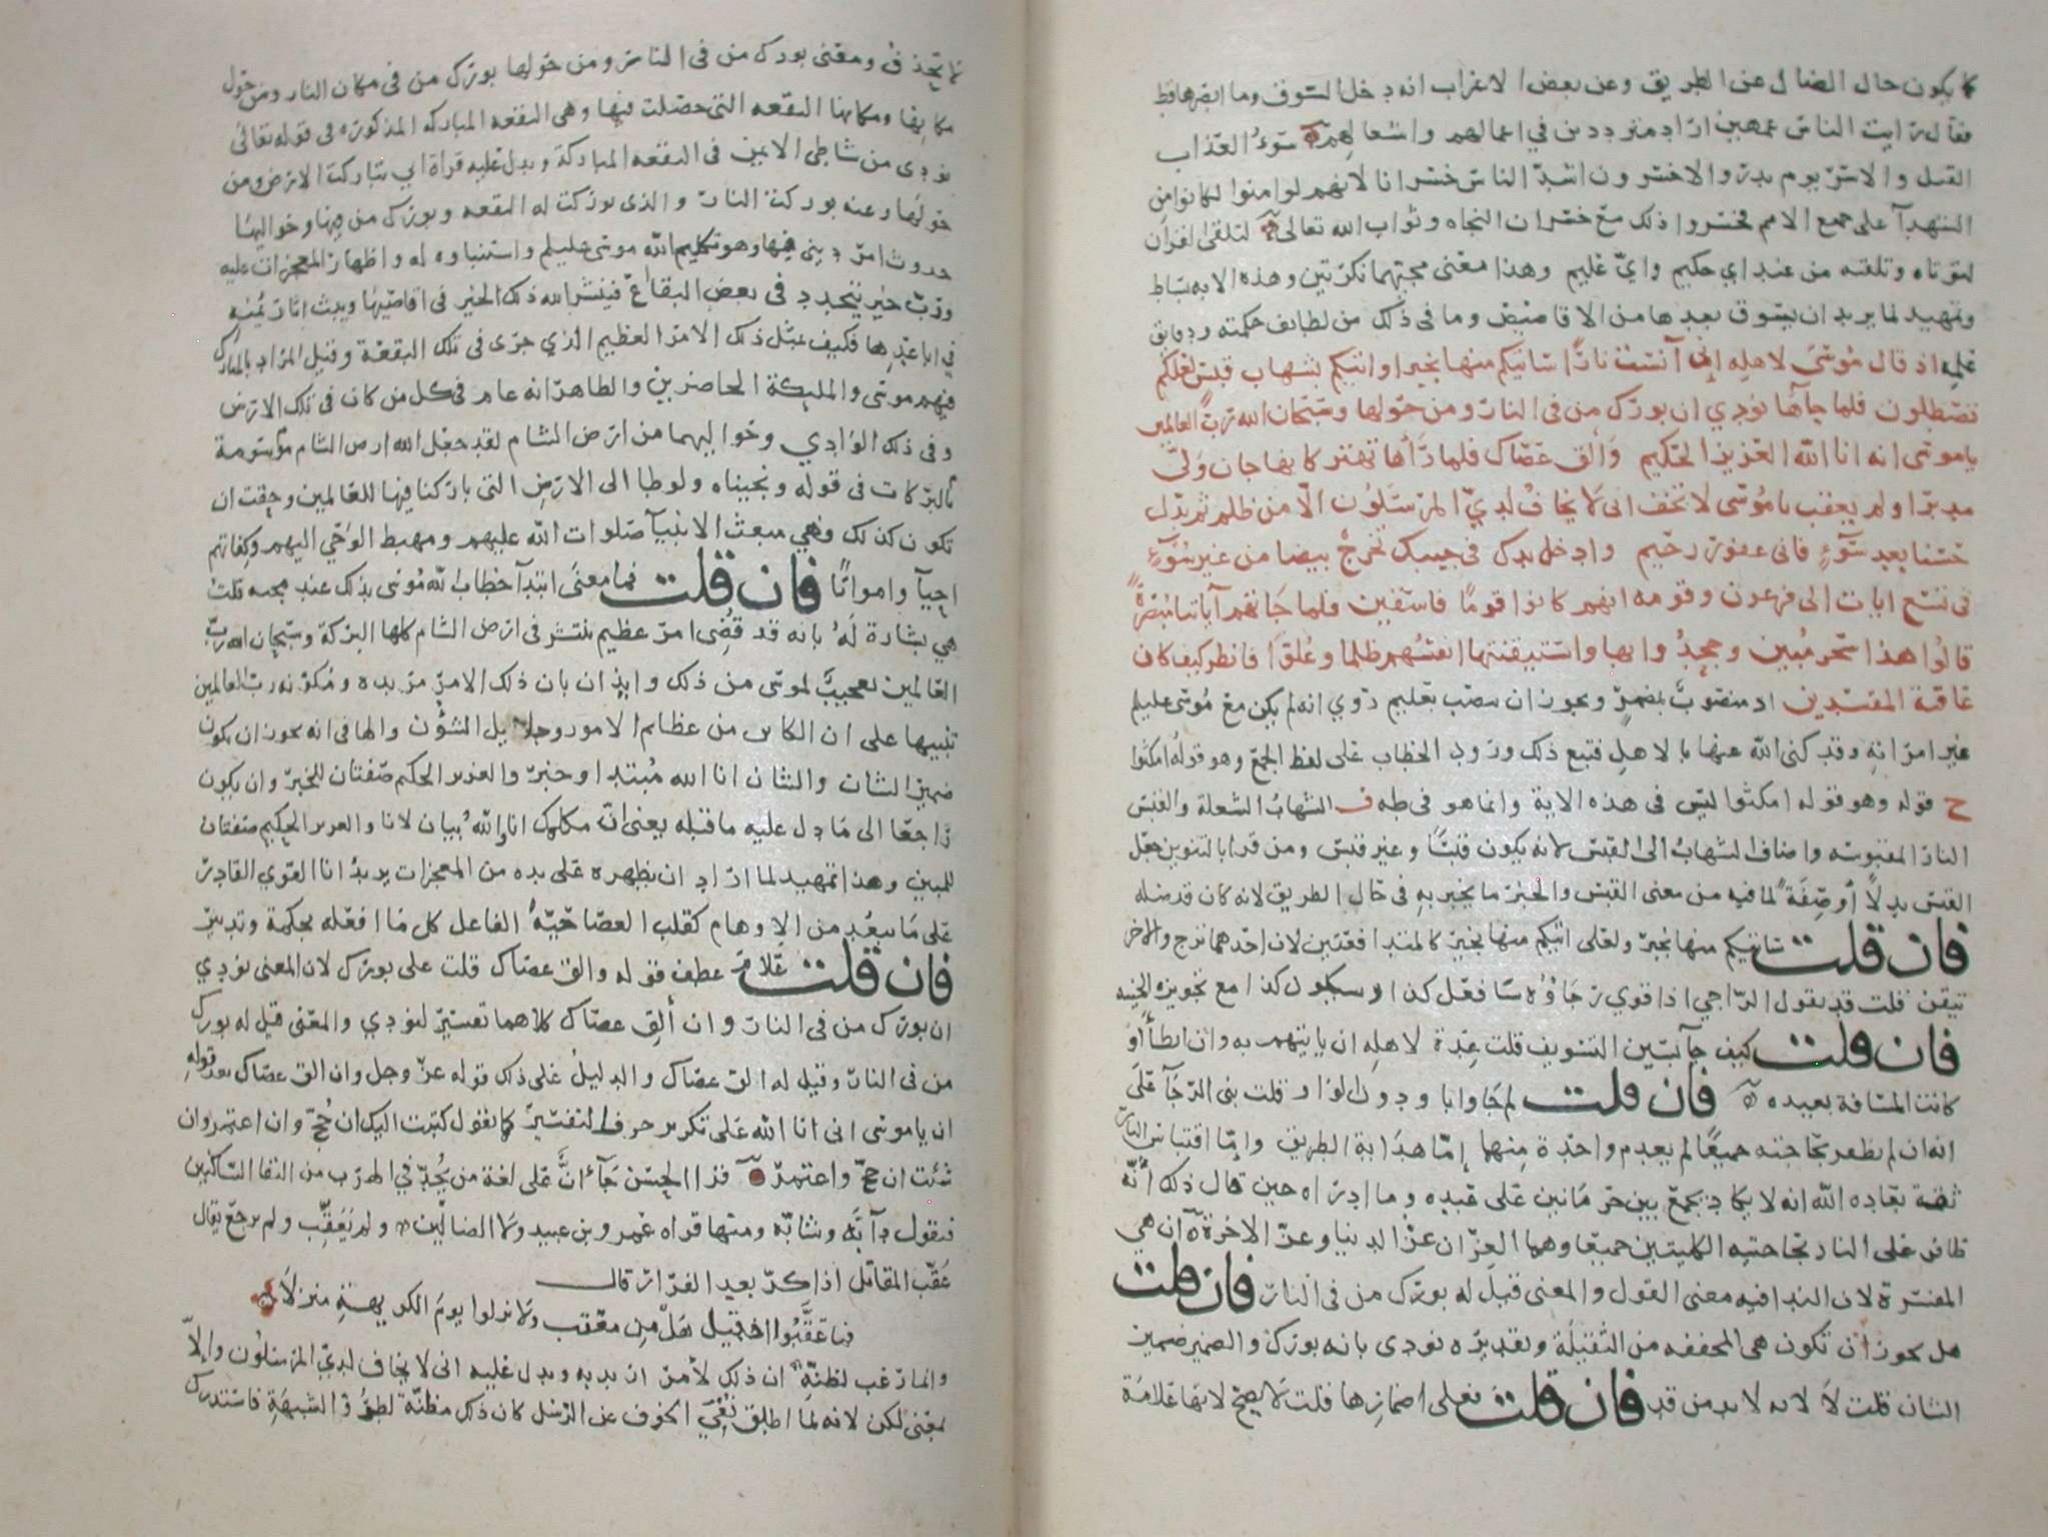 كما يكون حال الضال عن الطريق وعن بعض الاعراب انه دخل السوق وما ابصرها قط
فقال رايت الناس عمهين اراد مترددين في اعمالهم واشعالهم سوء العذاب
القتل والاسر يوم بدر والاخسرون اشد الناس خسرانا لانهم لو امنوا لكانوا من
الشهدآ على جميع الامم فخسروا ذلك مع خسران النجاه وثواب الله تعالى لتلقى القران
لتوتاه وتلقنه من عند اي حكيم واي عليم وهذا معنى مجيئهما نكرتين وهذه الايه بساط
وتمهيد لما يريد ان يسوق بعدها من الاقاصيص وما في ذلك من لطايف حكمته ودقايق
علمه اذ قال موسى لاهله اني آنست نارًا ساتيكم منها بخبر او اتيكم بشهاب قبس لعلكم
تصطلون فلما جآها نودي ان بورك من في النار ومن حولها وسبحان الله رب العالمين
يا موسى انه انا الله العزيز الحكيم وألق عصاك فلما رأها تهتز كانها جان ولى
مدبرا ولم يعقب يا موسى لا تخف انى لا يخاف لدي المرسلون الا من ظلم ثم بدل
حسنا بعد سوٓءٍ فانى غفور رحيم وادخل يدك في جيبك تخرج بيضا من غير سوٓءٍ
فى تسع ايات الى فرعون وقومه انهم كانوا قومًا فاسقين فلما جاتهم آياتنا مبصرةً
قالوا هذا سحر مبين وجحدوا بها واستيقنتها انفسهم ظلما وعلوا فانظر كيف كان
عاقبة المفسدين اذ منصوب بمضمر ويجوز ان ينتصب بعليم روي انه لم يكن مع موسى عليلم
غير امراته وقد كنى الله عنها بالاهل فتبع ذلك ورود الخطاب على لفظ الجمع وهو قوله امكثوا
ح قوله وهو قوله امكثوا ليس فى هذه الاية وانما هو فى طه ف الشهاب الشعلة والقبس
النار المقبوسه واضاف الشهاب الى القبس لانه يكون قبسًا وغير قبس ومن قرا بالتنوين جعل
القبس بدلاً أو صفةً لما فيه من معنى القبس والخبر ما يخبر به فى حال الطريق لانه كان قد ضله
فان قلت ساتيكم منها بخبر ولعلى اتيكم منها بخبر كالمتدافعين لان احدهما ترج والاخر
تيقن قلت قد يقول الراجي اذا قوي رجاؤه سافعل كذا وسيكون كذا مع تجويزه الخيبه
فان قلت كيف جآ بسين التسويف قلت عدة لاهله ان ياتيهم به وان ابطأ او
كانت المسافة بعيده فان قلت لم جا وابا ودون الواو قلت بنى الرجآ على
انه ان لم يظفر بحاجته جميعًا لم يعدم واحدة منهما إما هداية الطريق وإما اقتباس النار
ثقة بعاده الله انه لا يكاد يجمع بين حرمانين على عبده وما ادراه حين قال ذلك أنّه
ظافر على النار بحاجتيه الكليتين جميعا وهما العزان عز الدنيا وعز الاخرة آن هي
المفسرة لان الندا فيه معنى القول والمعنى قيل له بورك من في النار فان قلت
هل يجوز أن تكون هي المخففه من الثقيلة وتقديره نودى بانه بورك والضمير ضمير
الشان قلت لا لانه لا بد من قد فان قلت فعلى اضمارها قلت لا يصح لانها علامة
لا تحذف ومعنى بورك من فى النار ومن حولها بورك من فى مكان النار ومن حول
مكانها ومكانها البقعه التي حصلت فيها وهى البقعه المباركه المذكوره فى قوله تعالى
نودى من شاطي الايمن فى البقعه المباركة ويدل عليه قراة ابي تباركت الارض ومن
حولها وعنه بوركت النار والذى بوركت له البقعه وبورك من فيها وحواليها
حدوث امر ديني فيها وهو تكليم الله موسى عليلم واستنباوه له واظهار المعجزات عليه
ورب خير يتجدد فى بعض البقاع فينشر الله ذلك الخير فى اقاصيها ويبث اثار يمنه
في اباعدها فكيف بمثل ذلك الامر العظيم الذي جرى فى تلك البقعة وقيل المراد بالمبارك
فيهم موسى والمليكة الحاضرين والظاهر انه عام في كل من كان فى تلك الارض
وفى ذلك الوادي وحواليهما من ارض الشام لقد جعل الله ارض الشام موسومة
بالبركات فى قوله ونجيناه ولوطا الى الارض التى باركنا فيها للعالمين وحقت ان
تكون كذلك وهي مبعث الانبيآ صلوات الله عليهم ومهبط الوحي اليهم وكفاتهم
احيآ وامواتًا فان قلت فما معنى ابتدآ خطاب الله موسى بذلك عند مجيه قلت
هي بشارة له بانه قد قُضي امر عظيم ينتشر فى ارض الشام كلها البركة وسبحان الله رب
العالمين تعجيب لموسى من ذلك وايذان بان ذلك الامر مريده ومكونه رب العالمين
تنبيها على ان الكاين من عظايم الامور وجلايل الشؤن والها فى انه يجوز ان يكون
ضمير الشان والشان انا الله مبتدا وخبر والعزيز الحكيم صفتان للخبر وان يكون
راجعا الى ما دل عليه ما قبله يعنى ان مكلمك انا والله بيان لانا والعزيز الحكيم صفتان
للمبين وهذا تمهيد لما اراد ان يظهره على يده من المعجزات يريد انا القوي القادر
على ما يبعد من الاوهام كقلب العصا حيّةً الفاعل كل ما افعله بحكمة وتدبير
فان قلت علام عطف قوله والق عصاك قلت على بورك لان المعنى نودي
ان بورك من فى النار وان ألق عصاك كلاهما تفسير لنودي والمعنى قيل له بورك
من فى النار وقيل له الق عصاك والدليل على ذلك قوله عز وجل وان الق عصاك بعد قوله
ان يا موسى انى انا الله على تكرير حرف التفسير كما تقول كتبت اليك ان حُجّ وان اعتمر وان
شئت ان حج واعتمر قرا الحسن جآنّ على لغة من يُجدّ في الهرب من التقا الساكنين
فيقول دآبّه وشابّه ومنها قراه عمرو بن عبيد ولا الضالين ولم يُعَقِّب ولم يرجع يقال
عقّب المقاتل اذا كرّ بعد الفرار قال
فما عقّبوا اذ قيل هل من معقب ولا نزلوا يوم الكريهة منزلا
وانما رغب لظنّه ان ذلك لأمر اريد به ويدل عليه انى لا يخاف لديّ المرسلون وإلا
بمعنى لكن لانه لما اطلق نفي الخوف عن الرسل كان ذلك مظنّة لطروّ الشبهة فاستدرك